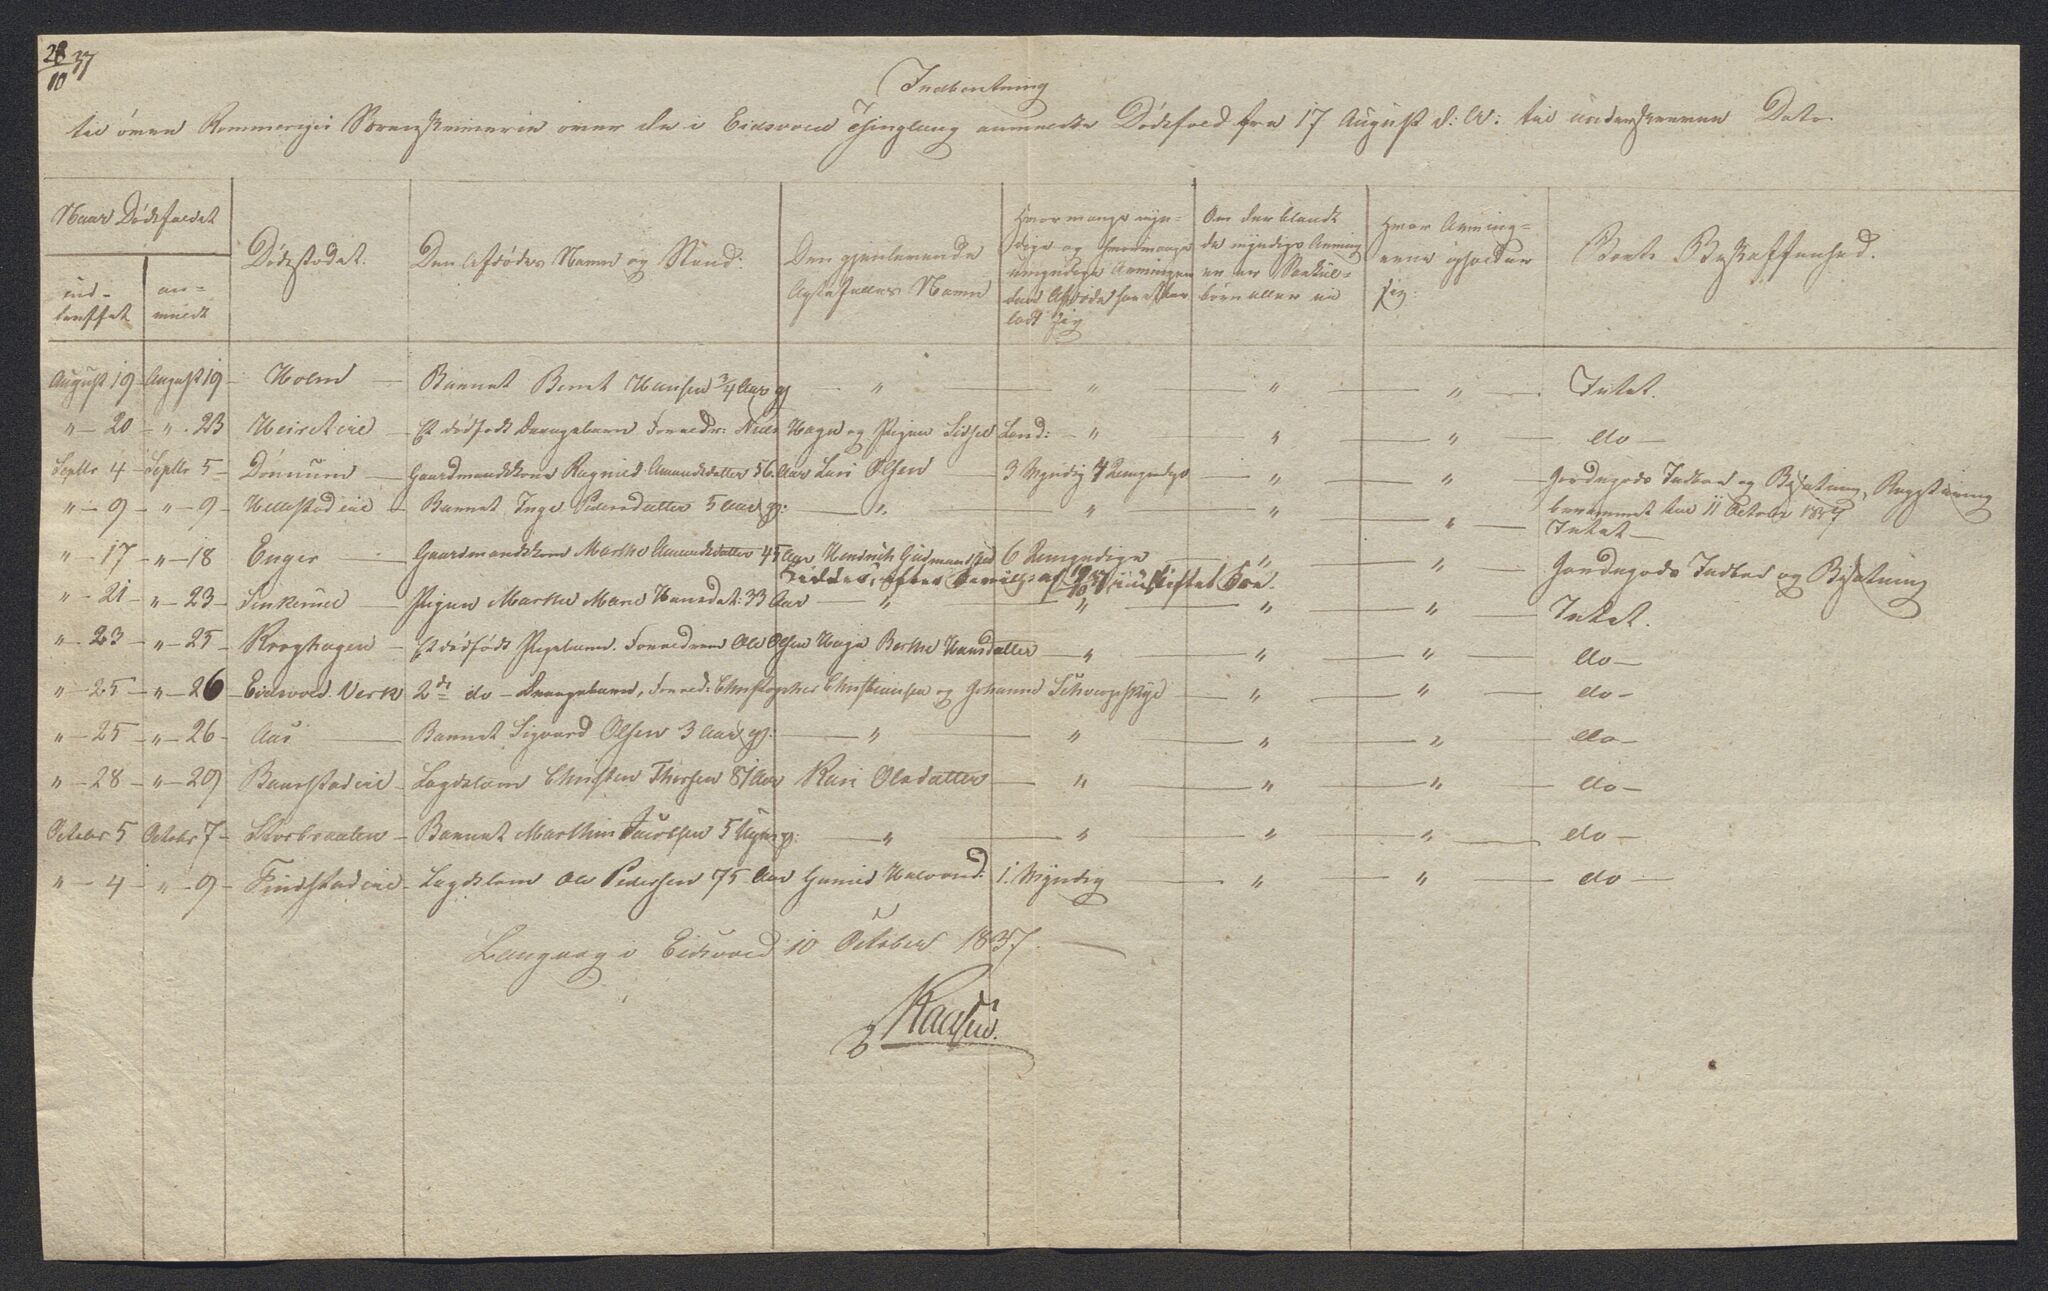 28/10 37
Indberetning
til øvre Rommeriges Sorenskriverie over de i Eidsvold Thinglaug anmeldte Dødsfald fra 17 August d: A: til underskrevne Dato.
Naar Dødsfaldet
ind-
truffet
an-
meldt
Dødsstedet.
Den Afdødes Navn og Stand.
Den gjenlevende
Ægtefælles Navn
Hvormange myn-
dige og hvormange
umyndige Arvinger
den Afdøde har efter
ladt sig
Om der blandt
de myndige Arving
er er Særkul-
børn eller ei
Hvor Arving-
erne opholder
sig.
Boets Beskaffenhed.
August 19 August 19 Holm Barnet Bernt Hansen 3/4 Aar gl " " " " Intet.
" 20 " 23 Et dødfødt Drengebarn Forældr: Niels Hagen og Pigen Sidsel Lond: " " " do
Septbr 4 Septbr 5 Dønnum Gaardmandskone Ragnild Amundsdatter 56 Aar Lars Olsen 3 Myndig 4 Umyndige " " Jordegods Indboe og Besætning, Registrering
berammet til 11 October 1837
" 9 " 9 Barnet Inge Pedersdatter 5 Aar gl: " " " " Intet
" 17 " 18 Enger Gaardmandskone Marthe Amundsdatter 45 Aar Hendrich Gudmundsen 6 Umyndige " " Jordegods Indboe og Besætning
Sidder, efter Bevilg: af 19/10 37 i uskiftet Boe.
" 21 " 23 Pigen Marthe Marie Hansdat: 33 Aar " " " " Intet.
" 23 " 25 Kroghagen Et dødfødt Pigebarn. Forældrene Ole Olsen Hage Berthe Hansdatter " " " do
" 25 " 26 Eidsvold Verk 2de do Drengebarn, Foræld: Christopher Christiansen og Johanne " " do
" 25 " 26 Aas Barnet Sigvard Olsen 3 Aar gl: " " " " do
" 28 " 29 Legdslem Christen Thorsen 81 Aar Kari Olsdatter " " " do
Octobr 5 Octobr 7 Storbraaten Barnet Marthin Jacobsen 5 Uger gl: " " " " do
" 4 " 9 Legdslem Ole Pedersen 75 Aar Gunild Halvorsd. 1. Myndig " " do
Langvag i Eidsvold 10 October 1837.